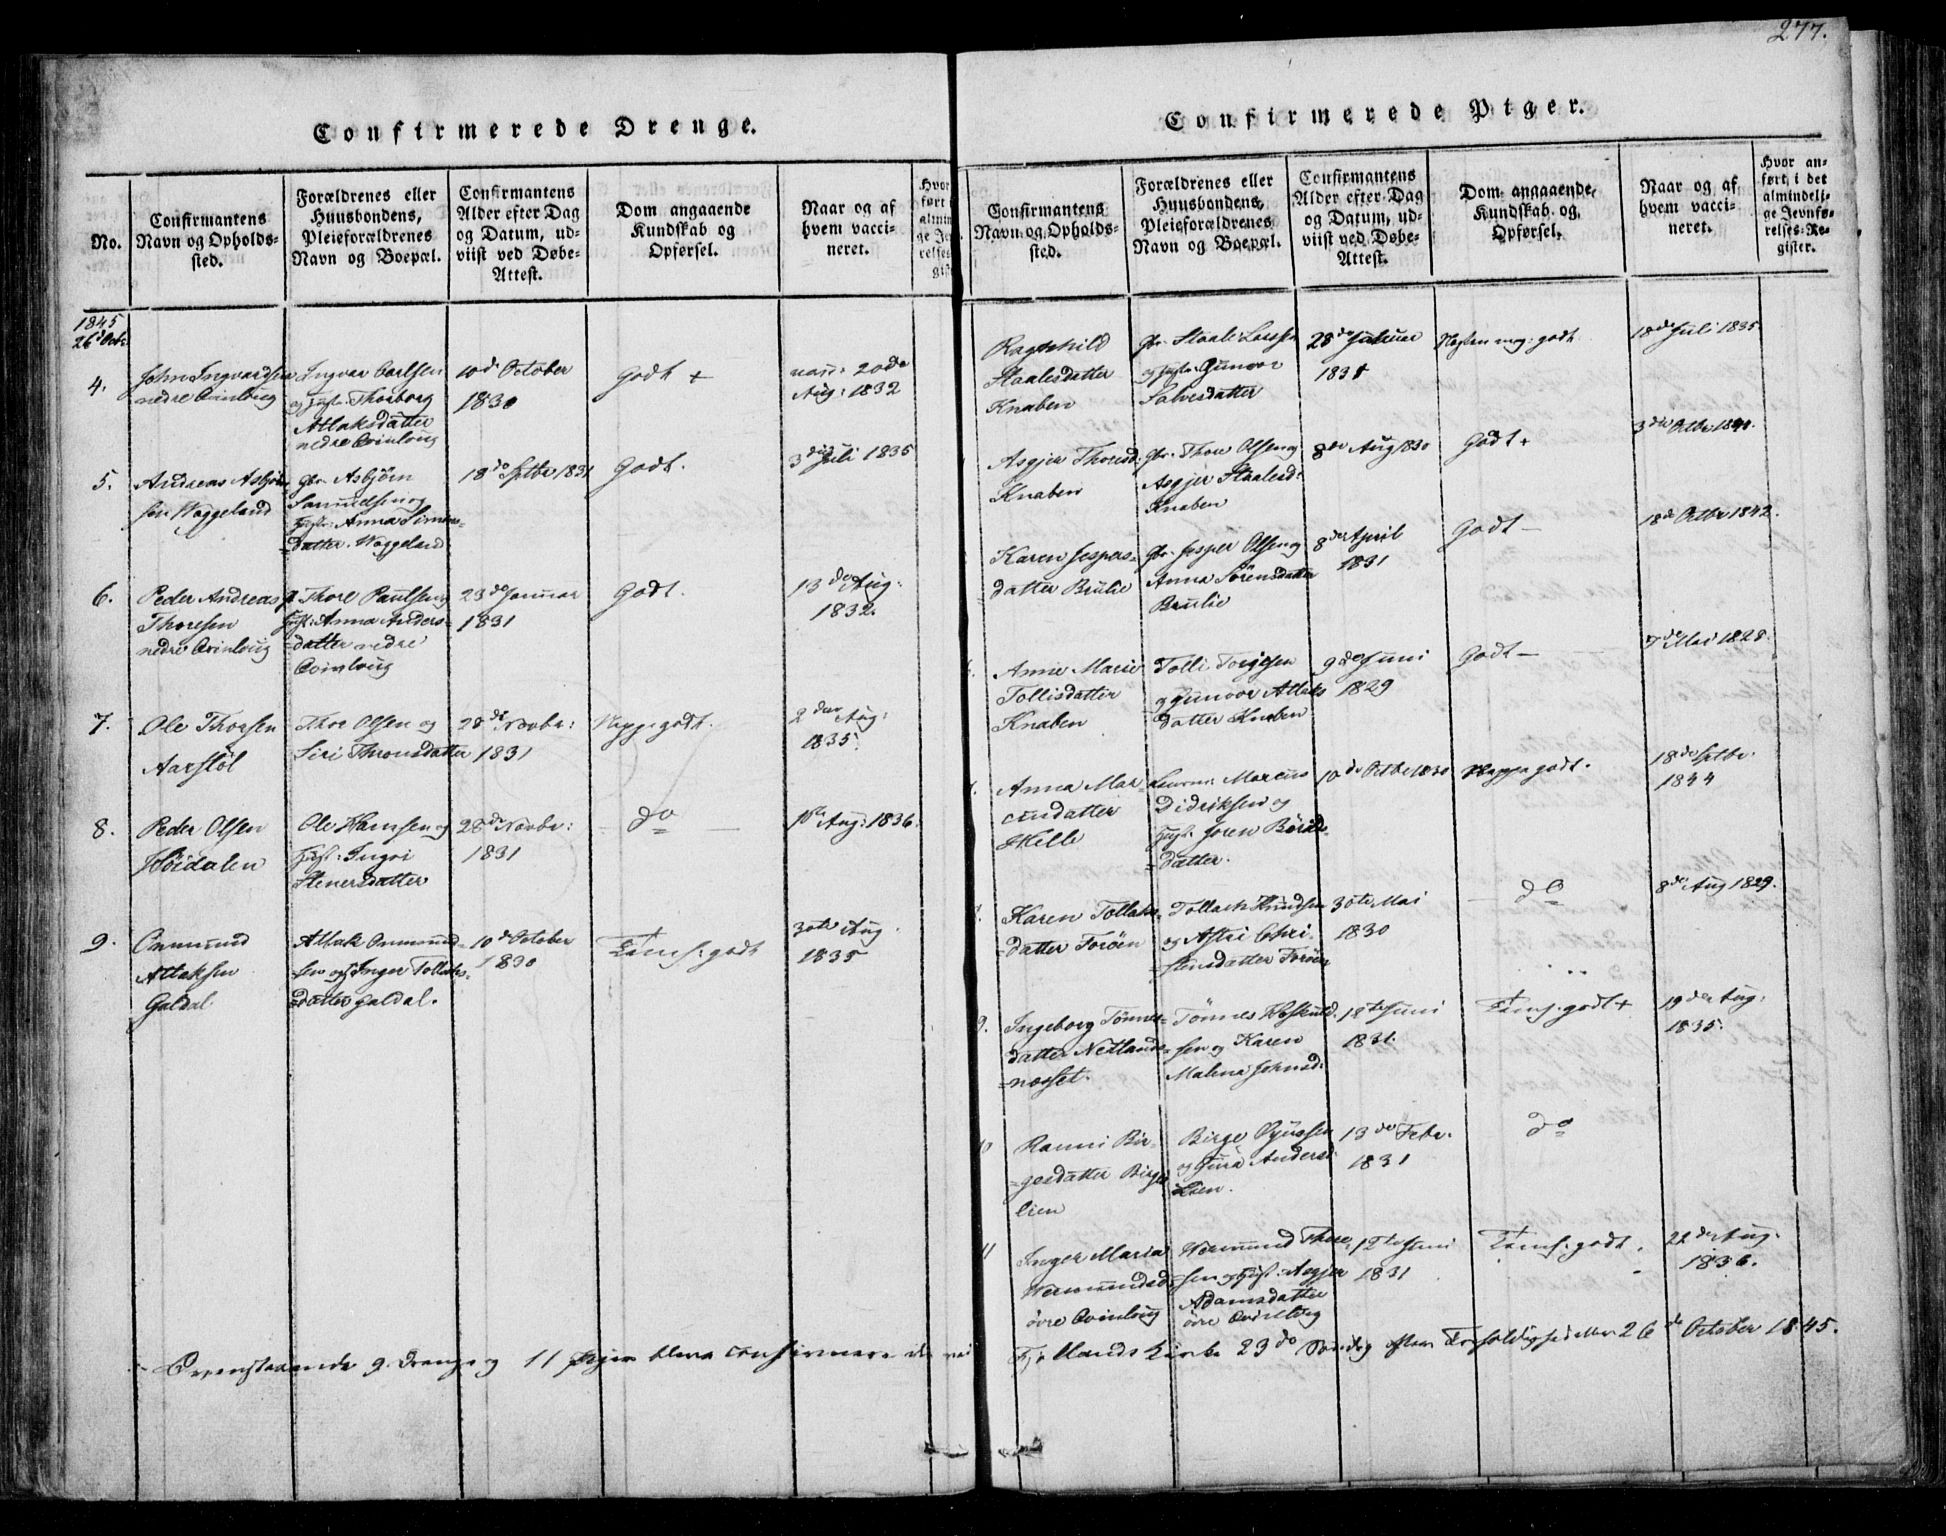 277.
Confirmerede Drenge.
No.
Confirmantens
Navn og Opholds-
sted.
Forældrenes eller
Huusbondens,
Pleieforældrenes
Navn og Boepæl.
Confirmantens
Alder efter Dag
og Datum, ud-
viist ved Døbe-
Attest.
Dom angaaende
Kundskab og
Opførsel.
Naar og af
hvem vacci-
neret.
Hvor
ført
almin
ge Je
relses
gist
1845
26de Octr
4.
John Ingvardsen
nedre Qvinlaug
Ingvar Carlsen
og Hust: Thorborg
Atlaksdatter
nedre Qvinlaug
10de October
1830
Godt +
20de
Aug: 1832
5.
Andreas Asbjörn-
sen Waggeland
Gbr. Asbjörn
Samuelsen og
Hust: Anna Simens-
datter. Waggeland
18de Septbr 1831
Godt.
3die Juli 1835
6.
Peder Andreas
Thoresen
nedre Qvinlaug
Thore Paulsen og
Hust: Anna Anders-
datter nedre
Qvinlaug
23de Januar
1831
Godt.
13de Aug:
1832.
7.
Ole Thorsen
Aarstöl
Thor Olsen og
Siri Thronsdatter
28de Novbr:
1831
Neppe godt.
2den Aug:
1835.
8.
Peder Olsen
Höidalen
Ole Hansen og
Hust: Ingri
Stenersdatter
28de Novbr:
1831
do
Aug: 1836.
9.
Ommund
Atlaksen
Galdal
Atlak Ommund-
sen og Inger Tollaks-
datter Galdal.
10de October
1830
Tems: godt
30te Aug.
1835
Confirmerede Piger.
Confirmantens
Navn og Opholds-
sted.
Forældrenes eller
Huusbondens,
Pleieforældrenes
Navn og Boepæl.
Confirmantens
Alder efter Dag
og Datum, ud-
viist ved Døbe-
Attest.
Dom angaaende
Kundskab og
Opførsel.
Naar og af
hvem vacci-
neret.
Hvor an-
ført, i det
almindeli-
ge Jevnfø-
relses-Re-
gister.
Ragnhild
Staalesdatter
Knaben
Gbr. Staale Larssen
og Hust: Gunvor
Salvesdatter
28de Januar
1831
Næsten meg: godt
18de Juli 1835
Asgjer Thoresd:
Knaben
Gbr. Thore Olsen og
Asgjer Staalesd:
Knaben
8de Aug 1830
Godt +
3die Octbr 1840.
Karen Jespers-
datter Brulie
Gbr. Jesper Olsen og
Anna Sörensdatter
Brulie
8de April
1831
Godt —
18de Octbr 1842.
Anne Marie
Tollisdatter
Knaben
Tolli Torgjesen
og Gunvor Atlaks
datter Knaben
9de Juni
1829
Godt —
7de Mai 1828.
Anna Mar-
cusdatter
Hille
Marcus
Didriksen og
Hust: Joren Börils-
datter.
10de Octbr 1830
Neppe godt.
18de Septbr.
1844
Karen Tollaks-
datter Foröen
Tollach Knudsen
og Astri Chri-
stensdatter Foröen
30te Mai
1830
do
8de Aug 1829.
9.
Ingeborg Tönnes-
datter Netlands-
næsset.
Tönnes Hoskuld-
sen og Karen
Malena Johnsd:
18de Juni
1831.
Tems: godt +
19de Aug:
1835.
10
Ranni Bir-
gesdatter Birge
lien
Birge Sjursen
og Gura Andersd
Lien.
13de Febr.
1831
do
11
Inger Maria
Wermundsd
övre Qvinlaug
Wermund Thore-
sen og Hust: Asgjer
Adamsdatter
övre Qvinlaug
12te Juni
1831
Tems: godt.
22de Aug.
1836.
Ovenstaaende 9 Drenge og 11 Piger bleve confirmere de ved Fjotlands Kirke 23de Söndag efter Trefoldighed eller 26de October 1845.